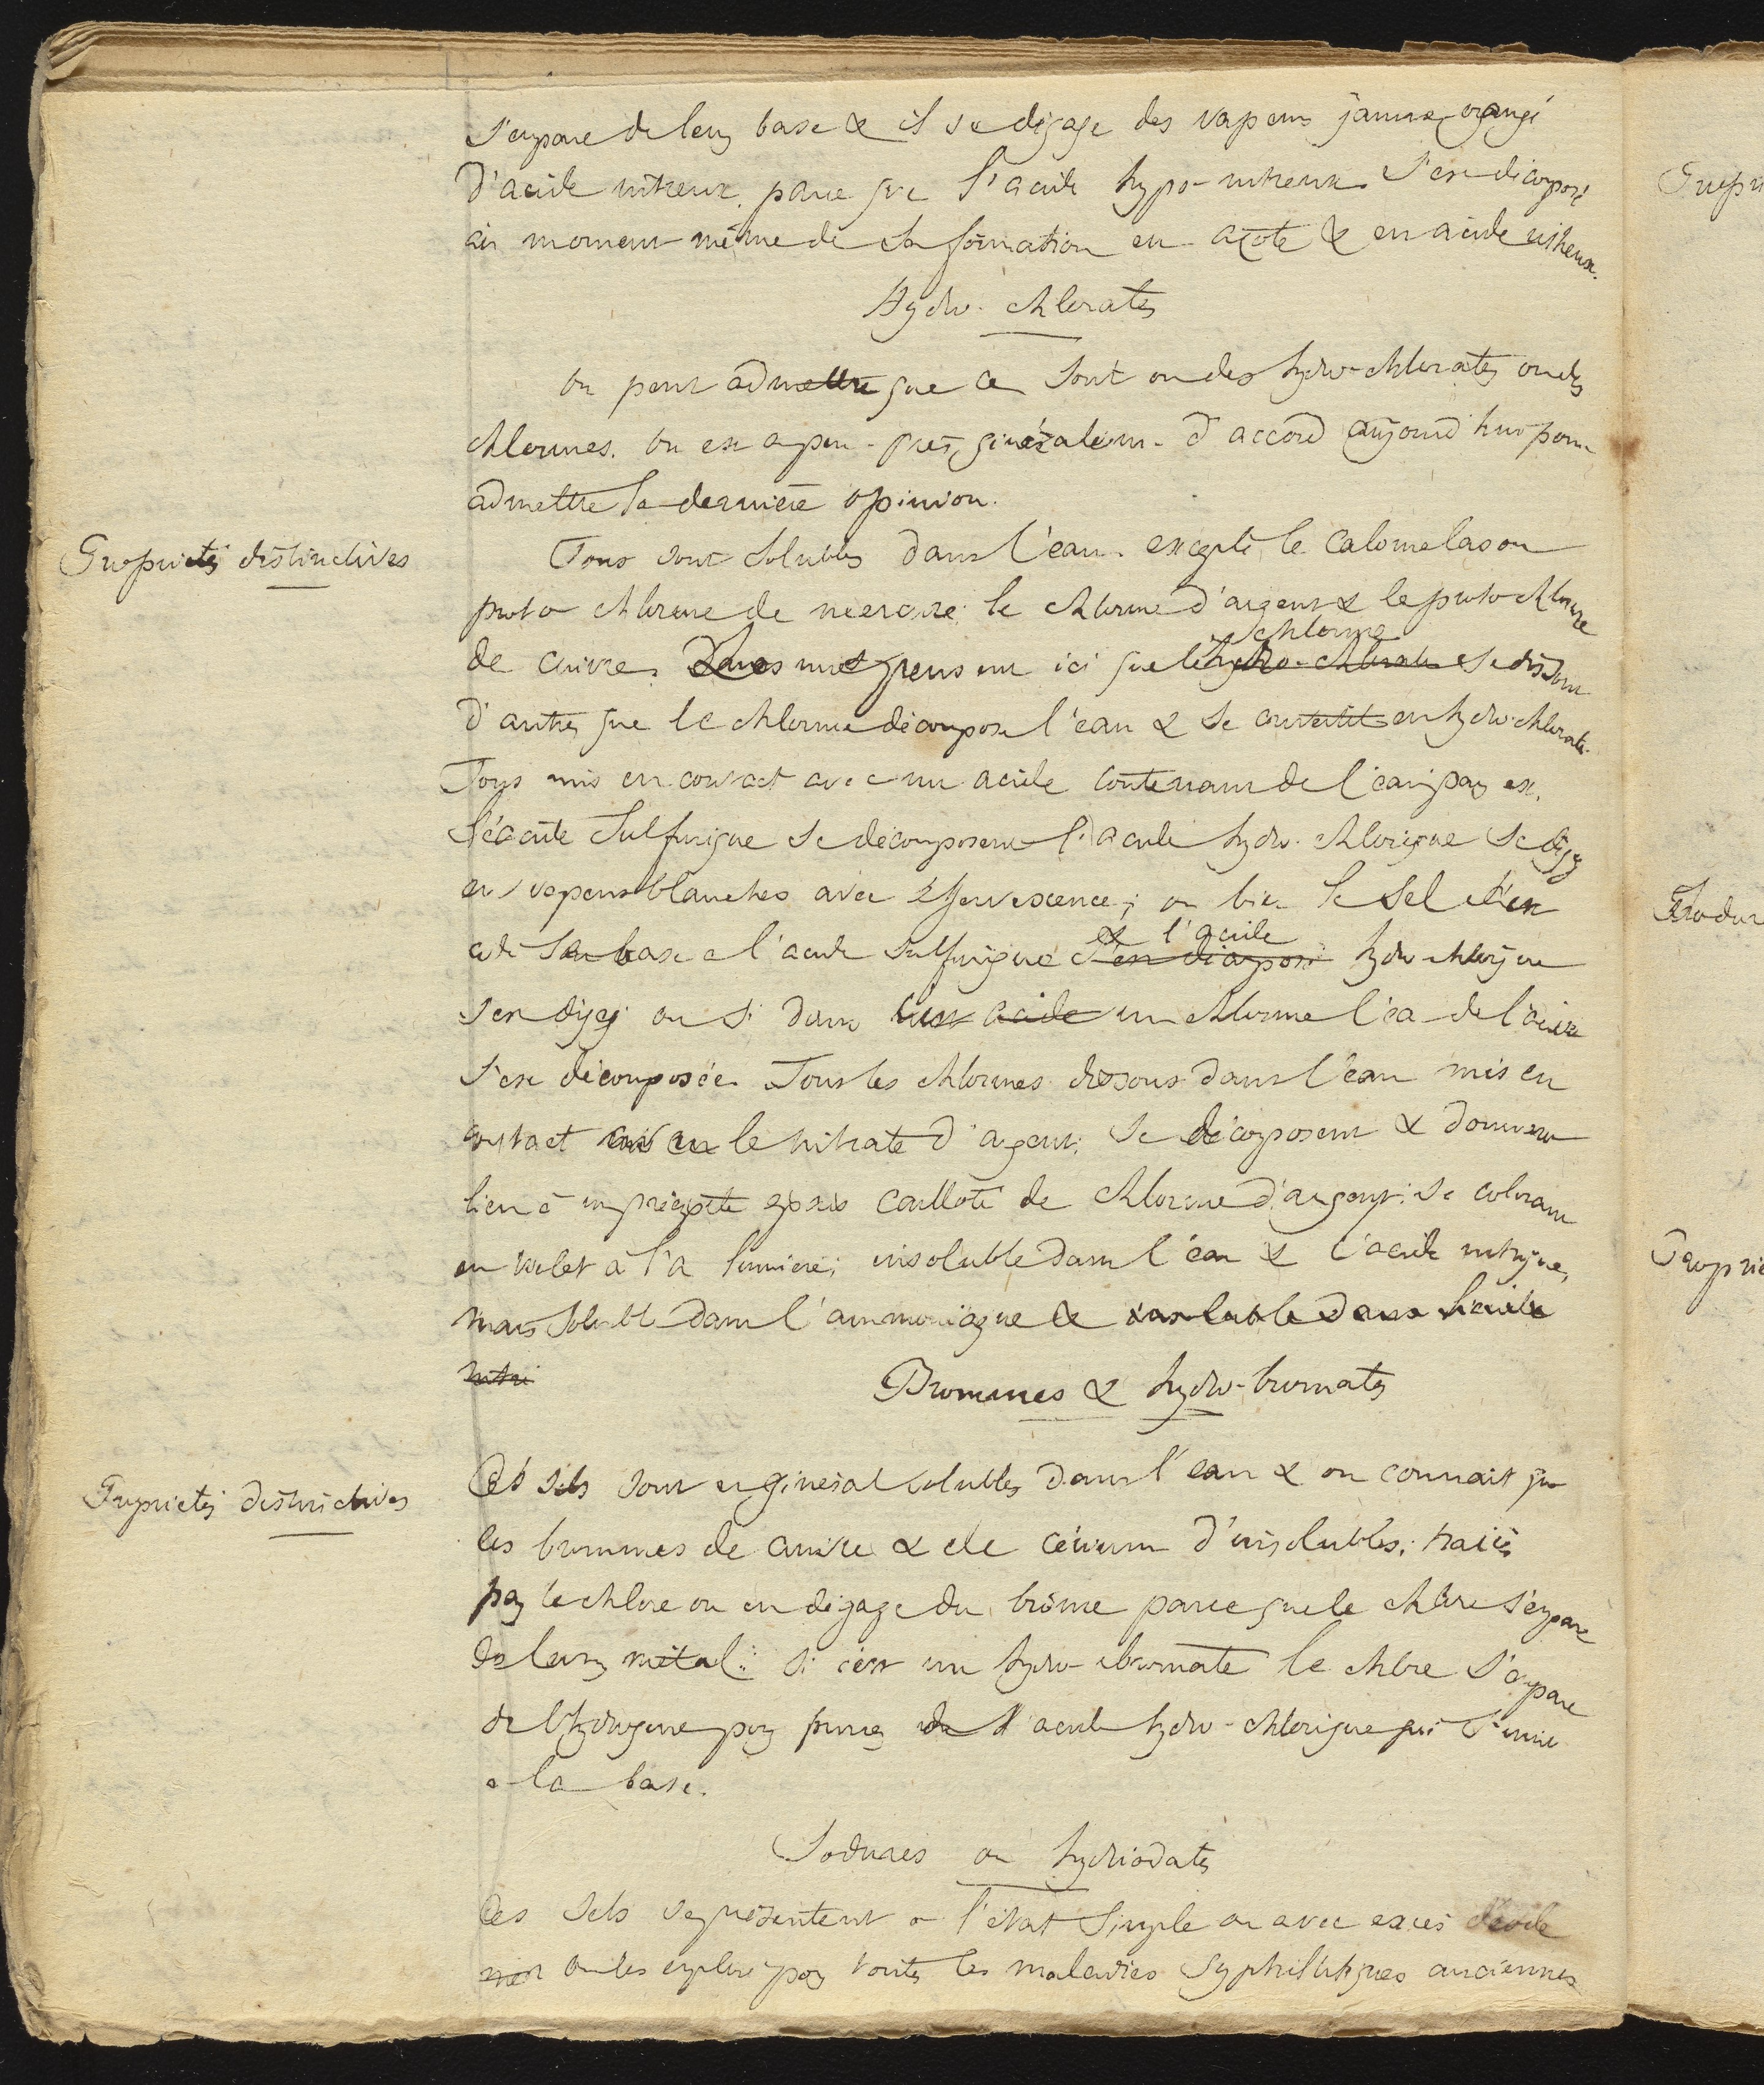 s'empare de leur base & il se dégage des vapeurs jaune orangé
d'acide nitreux parce que l'acide hypo-nitreux s'est décomposé
au moment même de sa formation en azote & en acide nitreux.
Hydro-chlorates
On peut admettre que ce sont ou des hydro-chlorates ou des
chlorures. On est a peu-près généralem. d'accord aujourd'hui pour
admettre la dernière opinion.
Propriétés distinctives
Tous sont solubles dans l'eau excepté le calomelas ou
proto chlorure de mercure, le chlorure d'argent & le proto-chlorure
chlorure
de cuivre. Les uns pensent ici que le hydro-chlorate se dissout
d'autres que le chlorure décompose l'eau & se convertit en hydro-chlorate.
Tous mis en contact avec un acide contenant de l'eau, par ex.
l'acide sulfurique se décomposent l'acide hydro-chlorique se dégage
en vapeurs blanches avec effervescence; ou bien le sel
cède sa base a l'acide sulfurique s'est décomposé hydro-chlorique
& l'acide
s'en dégage ou si dans acide un chlorure l'ea de l'acide
s'est décomposée. Tous les chlorures dissous dans l'eau mis en
contact avec le nitrate d'argent se décomposent & donnent
lieu à un précipité épais cailloté de chlorure d'argent; se colorant
en violet à la lumière; insoluble dans l'eau & l'acide nitrique,
mais soluble dans l'ammoniaque & insoluble dans l'acide
nitri
Bromures & hydro-bromates
Propriétés distinctives
Ces sels sont en général solubles dans l'eau & on connait que
les bromures de cuivre & de cérium d'insolubles; traités
par le chlore on en dégage du brôme parce que le chlore s'empare
de leur métal: si c'est un hydro-bromate le chlore s'empare
de l'hydrogène pour former de l'acide hydro-chlorique qui s'unit
a la base.
Iodures ou hydriodates
Ces sels se présentent a l'état simple ou avec excès d'iode
on les emploie pour toutes les maladies syphilitiques anciennes
Propri
Iodur
Proprié